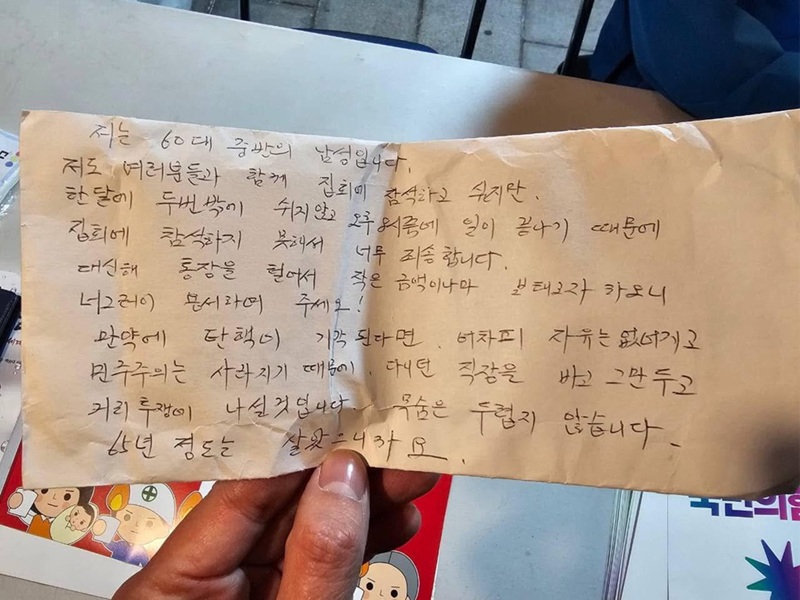 저는 60대 중반의 남성입니다.
저도 여러분들과 함께 집회에 참석하고 싶지만.
한달에 두번밖에 쉬지않고 오후8시쪽에 일이 끝나기 때문에
집회에 참석하지 못해서 너무 죄송합니다.
대신해 통장을 털어서 작은 금액이나마 보태고자 하오니
너그러이 용서하여 주세요!
만약에 탄핵이 기각 된다면. 어차피 자유는 없어지고
민주주의는 사라지기 때문에. 다니던 직장을 바고 그만두고
거리투쟁에 나설것입니다. 목숨은 두렵지 않습니다.
65년 정도는 살았으니까요.
국민의힘